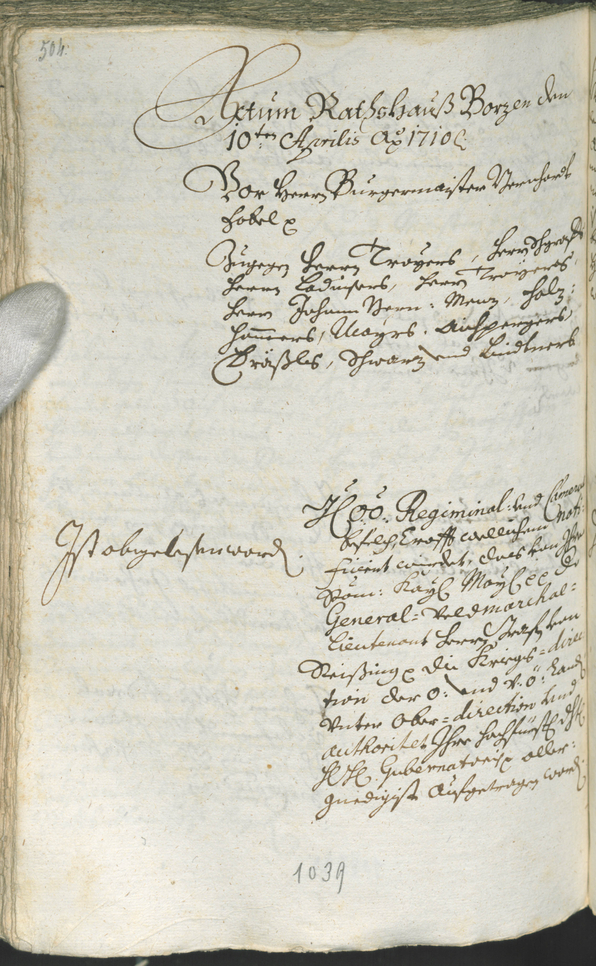 504.
Actum Rathshauß Bozen den
10ten Aprilis Ao 1710
Vor Herrn Burgermaister Bernhardt
Hobel
Zugegen Herrn Troyers, Herrn
Herrn Ladurners, Herrn Troyers
Herrn Johann Bern: Menz, Holz:
hamers, Mayrs, Aichpergers
Größles, Schwarz und Lindtners
Ist abgelesen word.
H: o:ö: Regiminal: und Camera
befelch, Crafft wellichem noti:
ficiert wirdet, das von Ihr
Röm: Kayl: May: dem
General: Veldmarchal:
Lieutenant Herrn Grafen von
die Kriegs-direc
tion der O: und V:Ö: Land
Unter Ober-direction und
authoritet Ihro hochfürstl: dhlt:
H: H: Gubernatoris aller:
gnedigist aufgetragen word.
1039